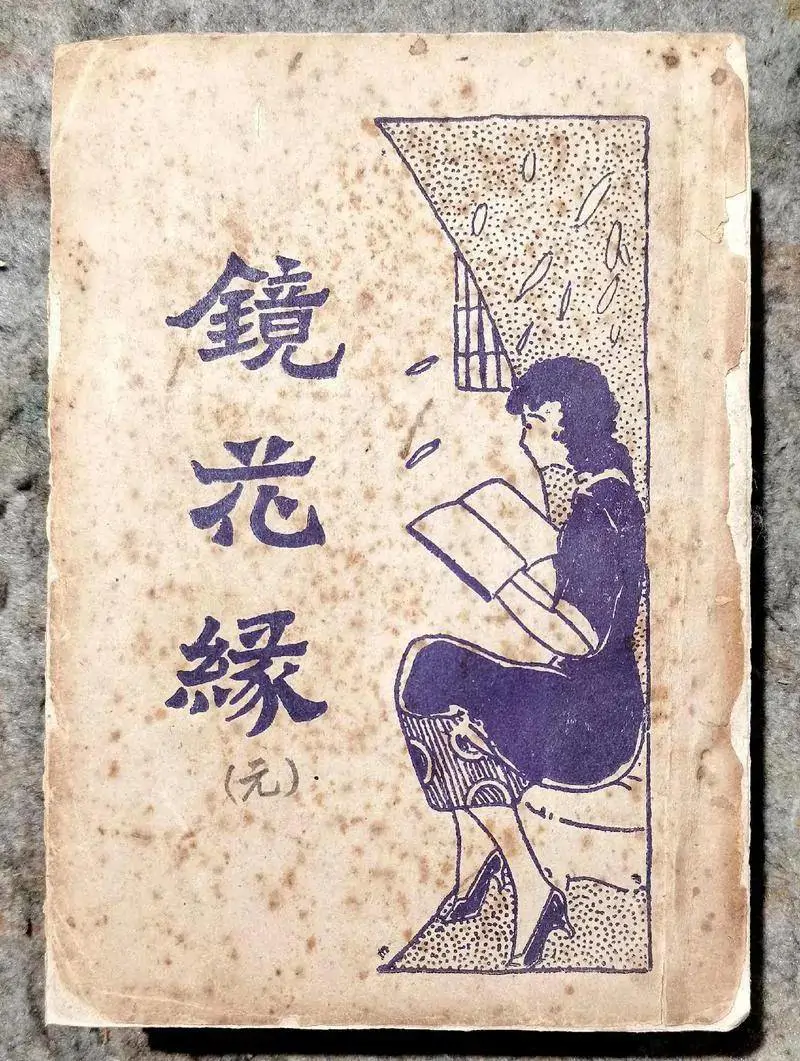 鏡花緣
(元)